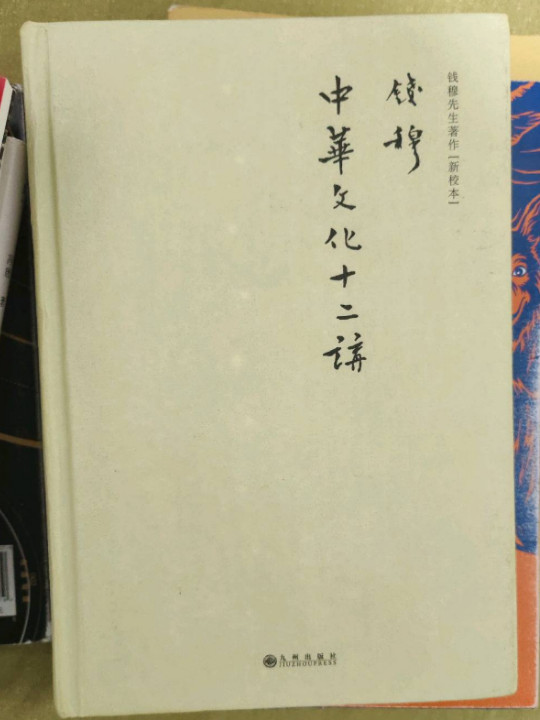 钱穆先生著作[新校本]
錢穆
中華文化十二講
九州出版社
JIUZHOUPRESS